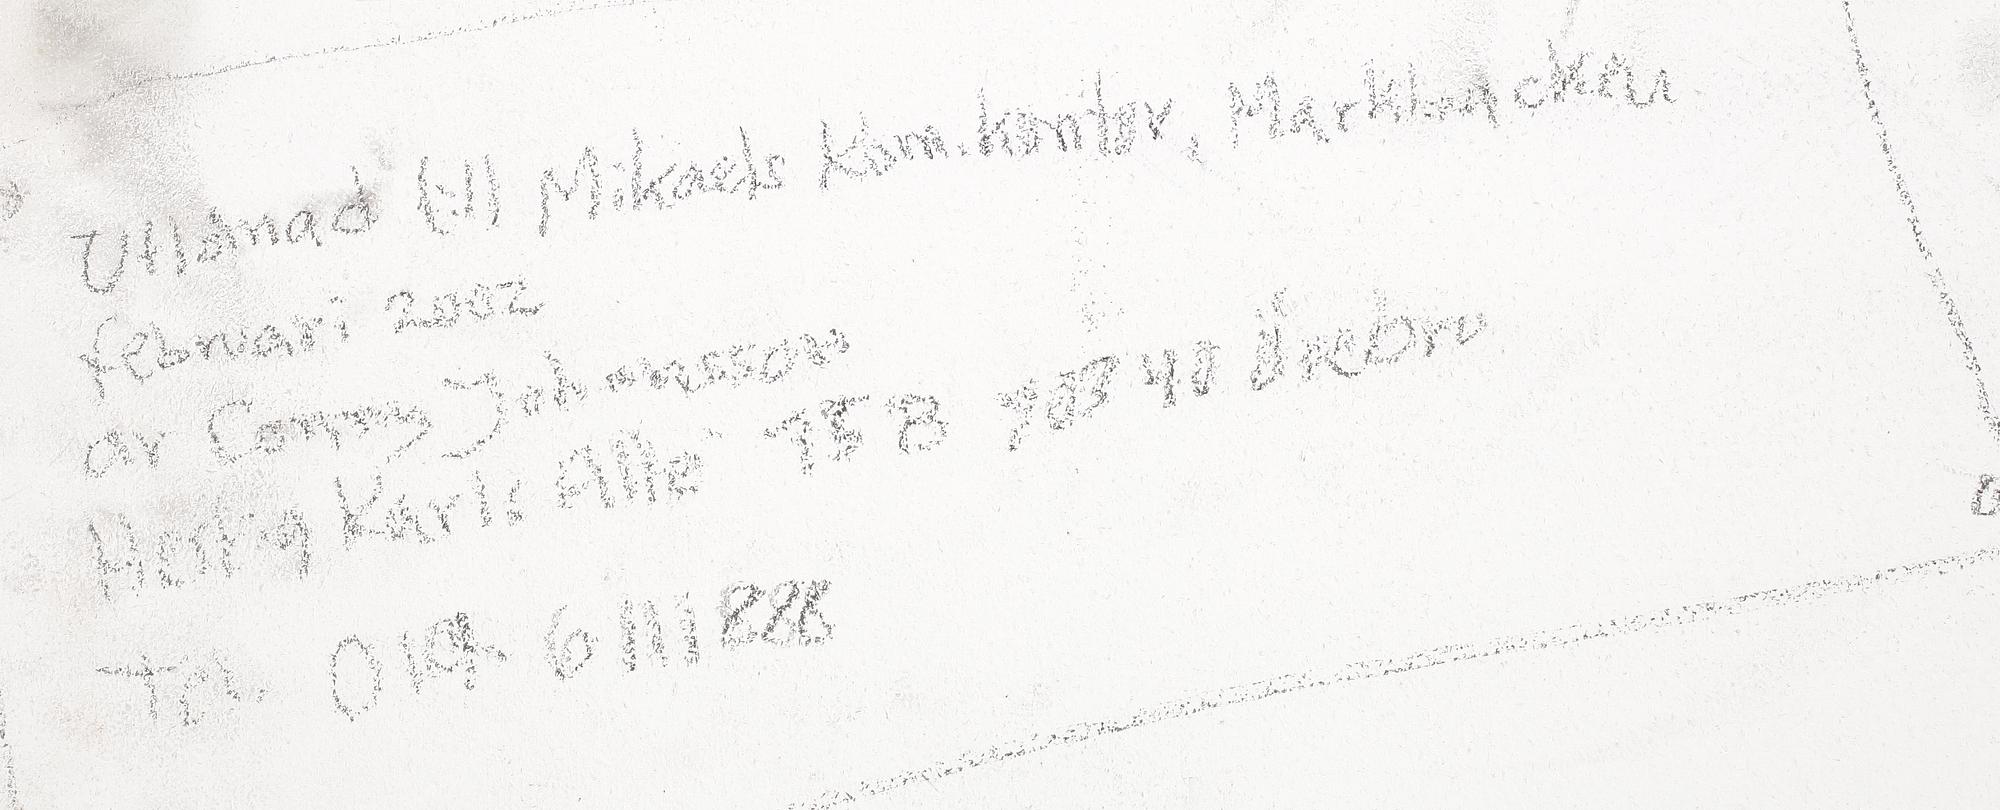 Utlånad till Mikaels kom.kontor, Marklinckau
februari 2002
av Conny Johansson
Hertig Karls Allé 75 B 703 40 Örebro
Tfn. 019 6111888